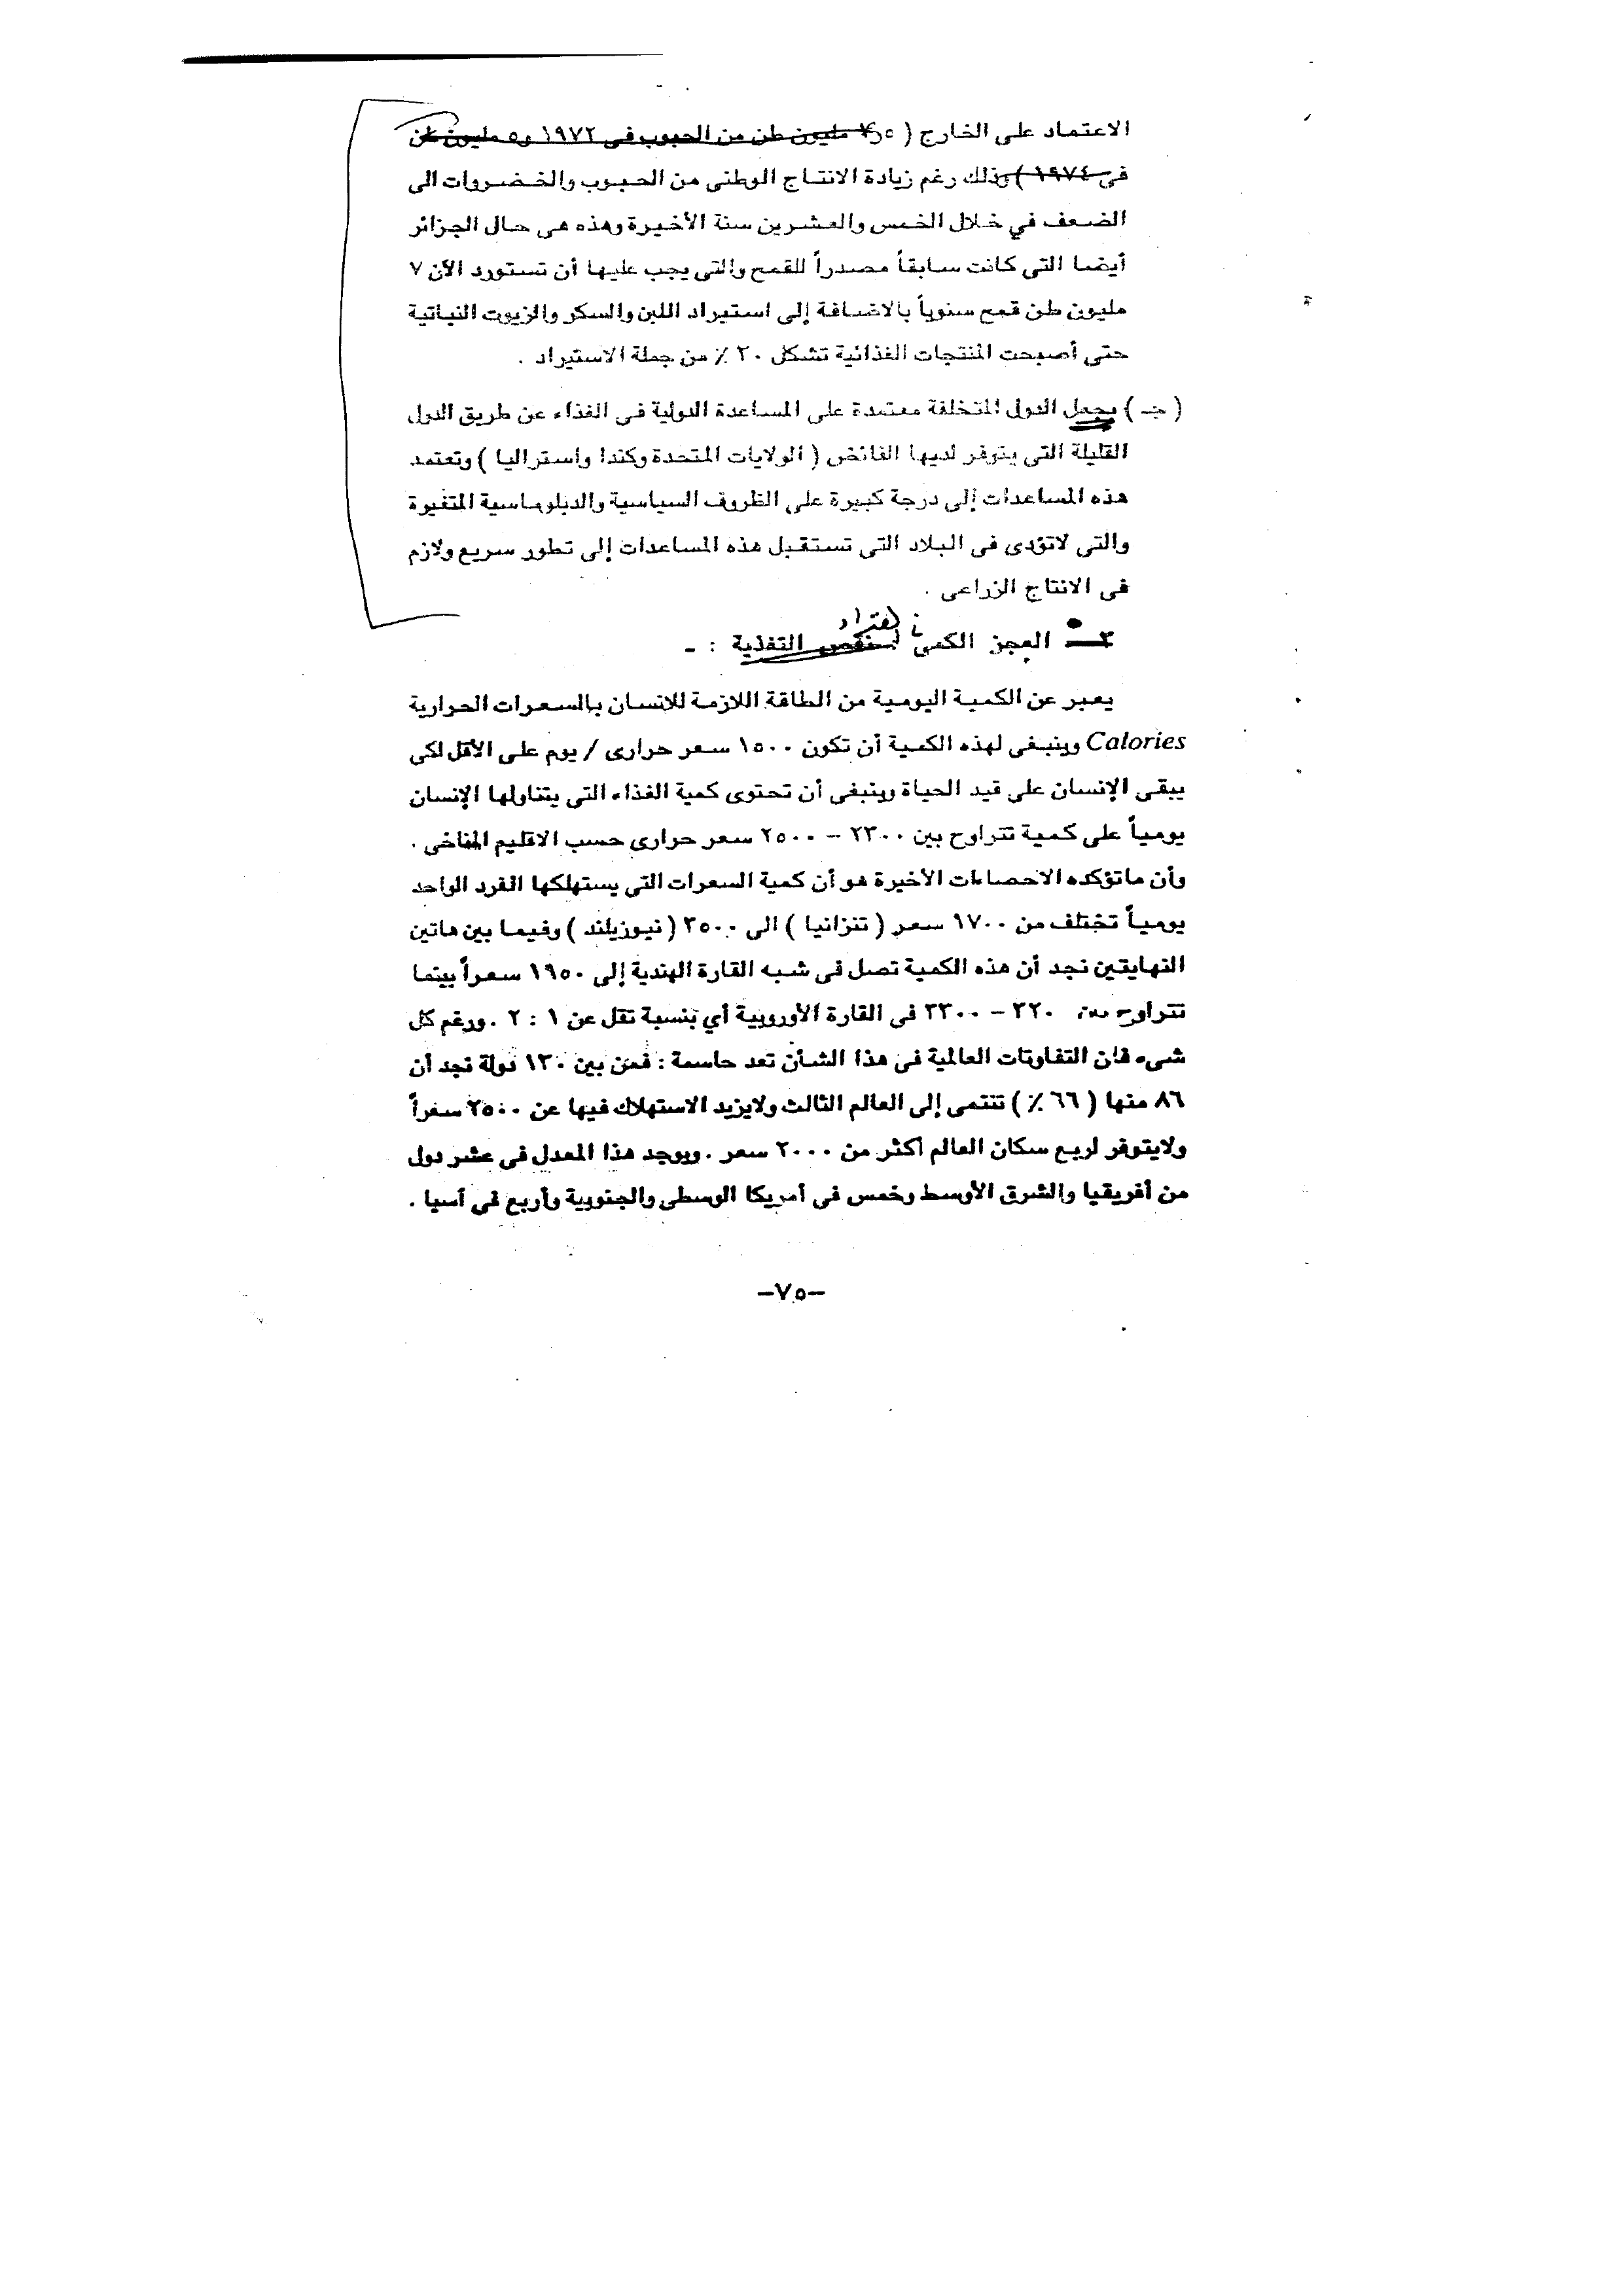 الاعتماد على الخارج ( ٥ر٧ مليون طن من الحبوب فى ١٩٧٢ و٥ مليون طن
فى ١٩٧٤ ) وذلك رغم زيادة الانتاج الوطنى من الحبوب والخضروات الى
الضعف في خلال الخمس والعشرين سنة الأخيرة وهذه هى حال الجزائر
أيضا التى كانت سابقاً مصدراً للقمح والتى يجب عليها أن تستورد الآن ٧
مليون طن قمح سنوياً بالاضافة إلى استيراد اللبن والسكر والزيوت النباتية
حتى أصبحت المنتجات الغذائية تشكل ٢٠ ٪ من جملة الاستيراد .
( جـ ) يجعل الدول المتخلفة معتمدة على المساعدة الدولية فى الغذاء عن طريق الدول
القليلة التى يتوفر لديها الفائض ( الولايات المتحدة وكندا واستراليا ) وتعتمد
هذه المساعدات إلى درجة كبيرة على الظروف السياسية والدبلوماسية المتغيرة
والتى لاتؤدى فى البلاد التى تستقبل هذه المساعدات إلى تطور سريع ولازم
فى الانتاج الزراعى .
العجز الكمى نقص التغذية : ـ
يعبر عن الكمية اليومية من الطاقة اللازمة للانسان بالسعرات الحرارية
Calories وينبغى لهذه الكمية أن تكون ١٥٠٠ سعر حرارى / يوم على الأقل لكى
يبقى الإنسان على قيد الحياة وينبغى أن تحتوى كمية الغذاء التى يتناولها الإنسان
يومياً على كمية تتراوح بين ٢٣٠٠ – ٢٥٠٠ سعر حرارى حسب الاقليم المناخى .
وأن ماتؤكده الاحصاءات الأخيرة هو أن كمية السعرات التى يستهلكها الفرد الواحد
يومياً تختلف من ١٧٠٠ سعر ( تنزانيا ) الى ٣٥٠٠ ( نيوزيلند ) وفيما بين هاتين
النهايتين نجد أن هذه الكمية تصل فى شبه القارة الهندية إلى ١٩٥٠ سعراً بينما
تتراوح ٢٢٠ – ٣٣٠٠ فى القارة الأوروبية أي بنسبة تقل عن ١ : ٢ . ورغم كل
شىء فان التفاوتات العالمية فى هذا الشأن تعد حاسمة : فمن بين ١٣٠ دولة نجد أن
٨٦ منها ( ٦٦ ٪ ) تنتمى إلى العالم الثالث ولايزيد الاستهلاك فيها عن ٢٥٠٠ سعراً
ولايتوفر لربع سكان العالم أكثر من ٢٠٠٠ سعر . ويوجد هذا المعدل فى عشر دول
من أفريقيا والشرق الأوسط وخمس فى أمريكا الوسطى والجنوبية وأربع فى آسيا .
–٧٥–